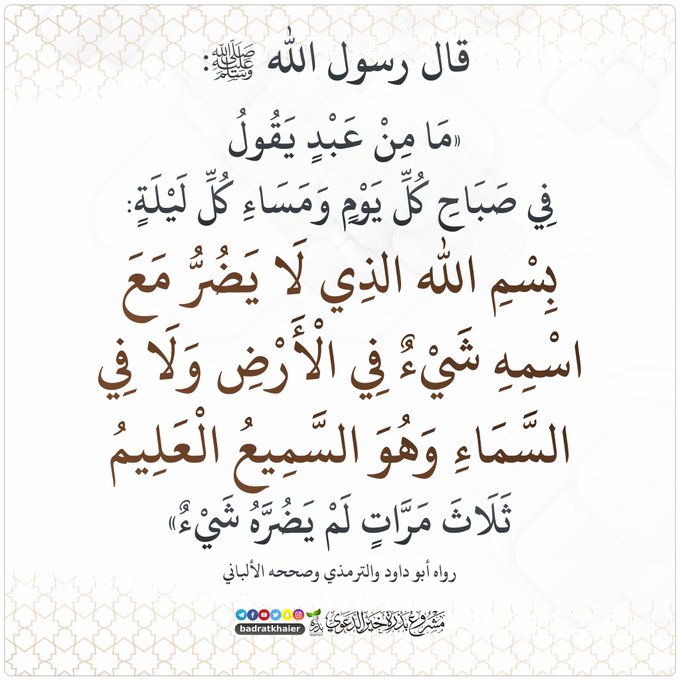 قال رسول الله ﷺ:
«مَا مِنْ عَبْدٍ يَقُولُ
فِي صَبَاحِ كُلِّ يَوْمٍ وَمَسَاءِ كُلِّ لَيْلَةٍ:
بِسْمِ الله الذِي لَا يَضُرُّ مَعَ
اسْمِهِ شَيْءٌ فِي الْأَرْضِ وَلَا فِي
السَّمَاءِ وَهُوَ السَّمِيعُ الْعَلِيمُ
ثَلَاثَ مَرَّاتٍ لَمْ يَضُرَّهُ شَيْءٌ»
رواه أبو داود والترمذي وصححه الألباني
مشروع بذرة خير الدعوي
badratkhaier